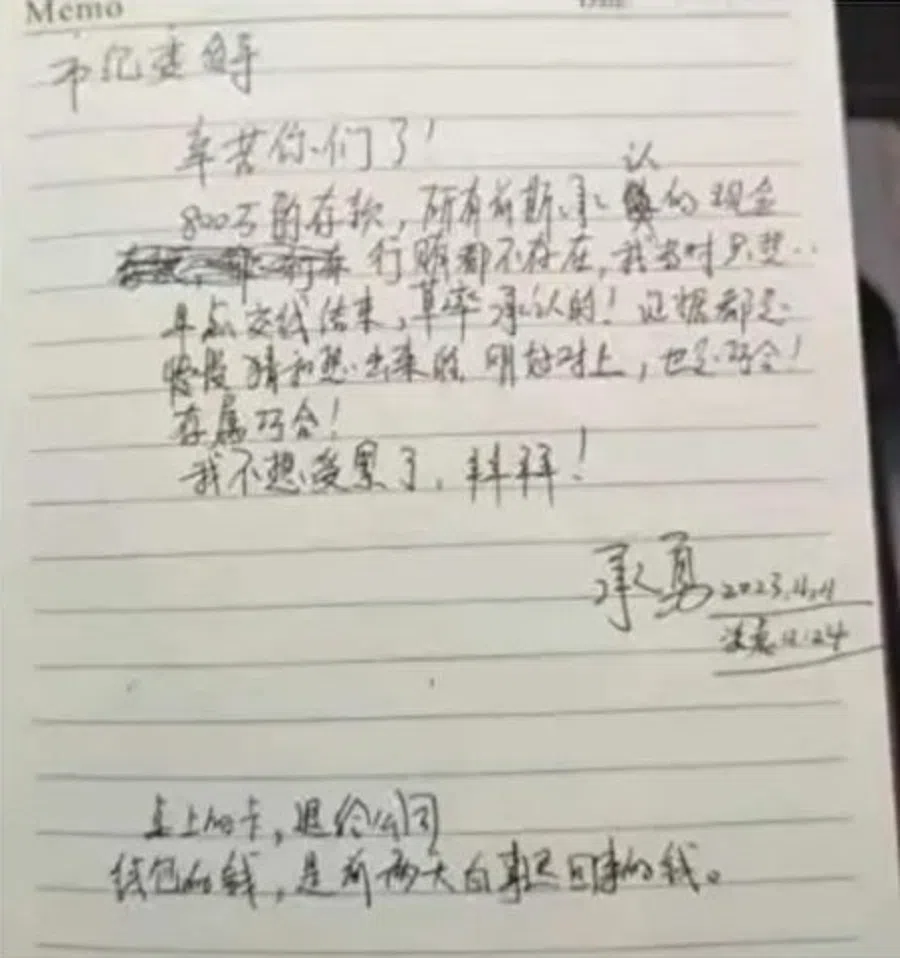 Memo
市纪委领导
辛苦你们了！
认
800万的存款，所有前期承的现金
行贿都不存在，我当时只想
早点交代结束，草率承认的！证据都是
猜和想出来的，刚好对上，也是巧合！
存属巧合！
我不想受累了，拜拜！
承勇 2023.11.11
凌晨12:24
桌上的卡，退给公司
钱包的钱，是前两天白事还回来的钱。